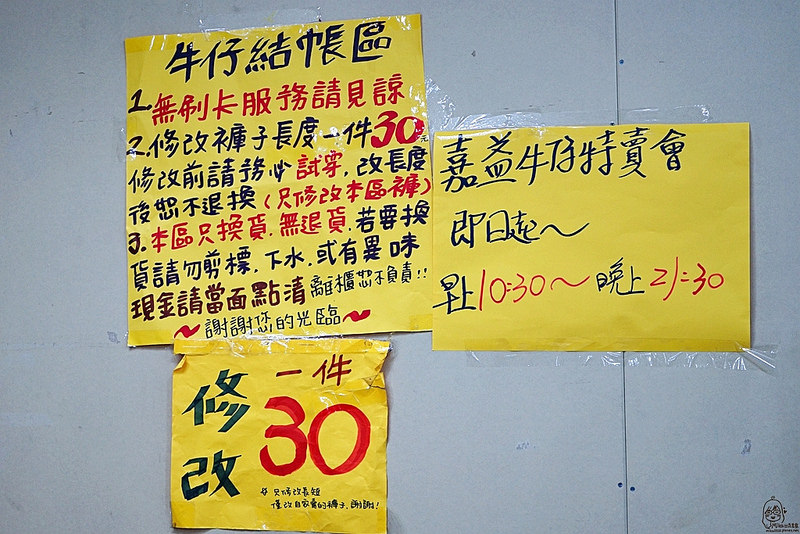 牛仔結帳區
1.無刷卡服務請見諒
2.修改褲子長度一件30元
修改前請務必試穿,改長度
後恕不退換(只修改本區褲)
3.本區只換貨.無退貨.若要換
貨請勿剪標.下水.或有異味
現金請當面點清離櫃恕不負責!!
~謝謝您的光臨~
嘉益牛仔特賣會
即日起~
早上10:30~晚上21:30
修改
一件
30
只修改長短
僅改自家賣的褲子,謝謝!